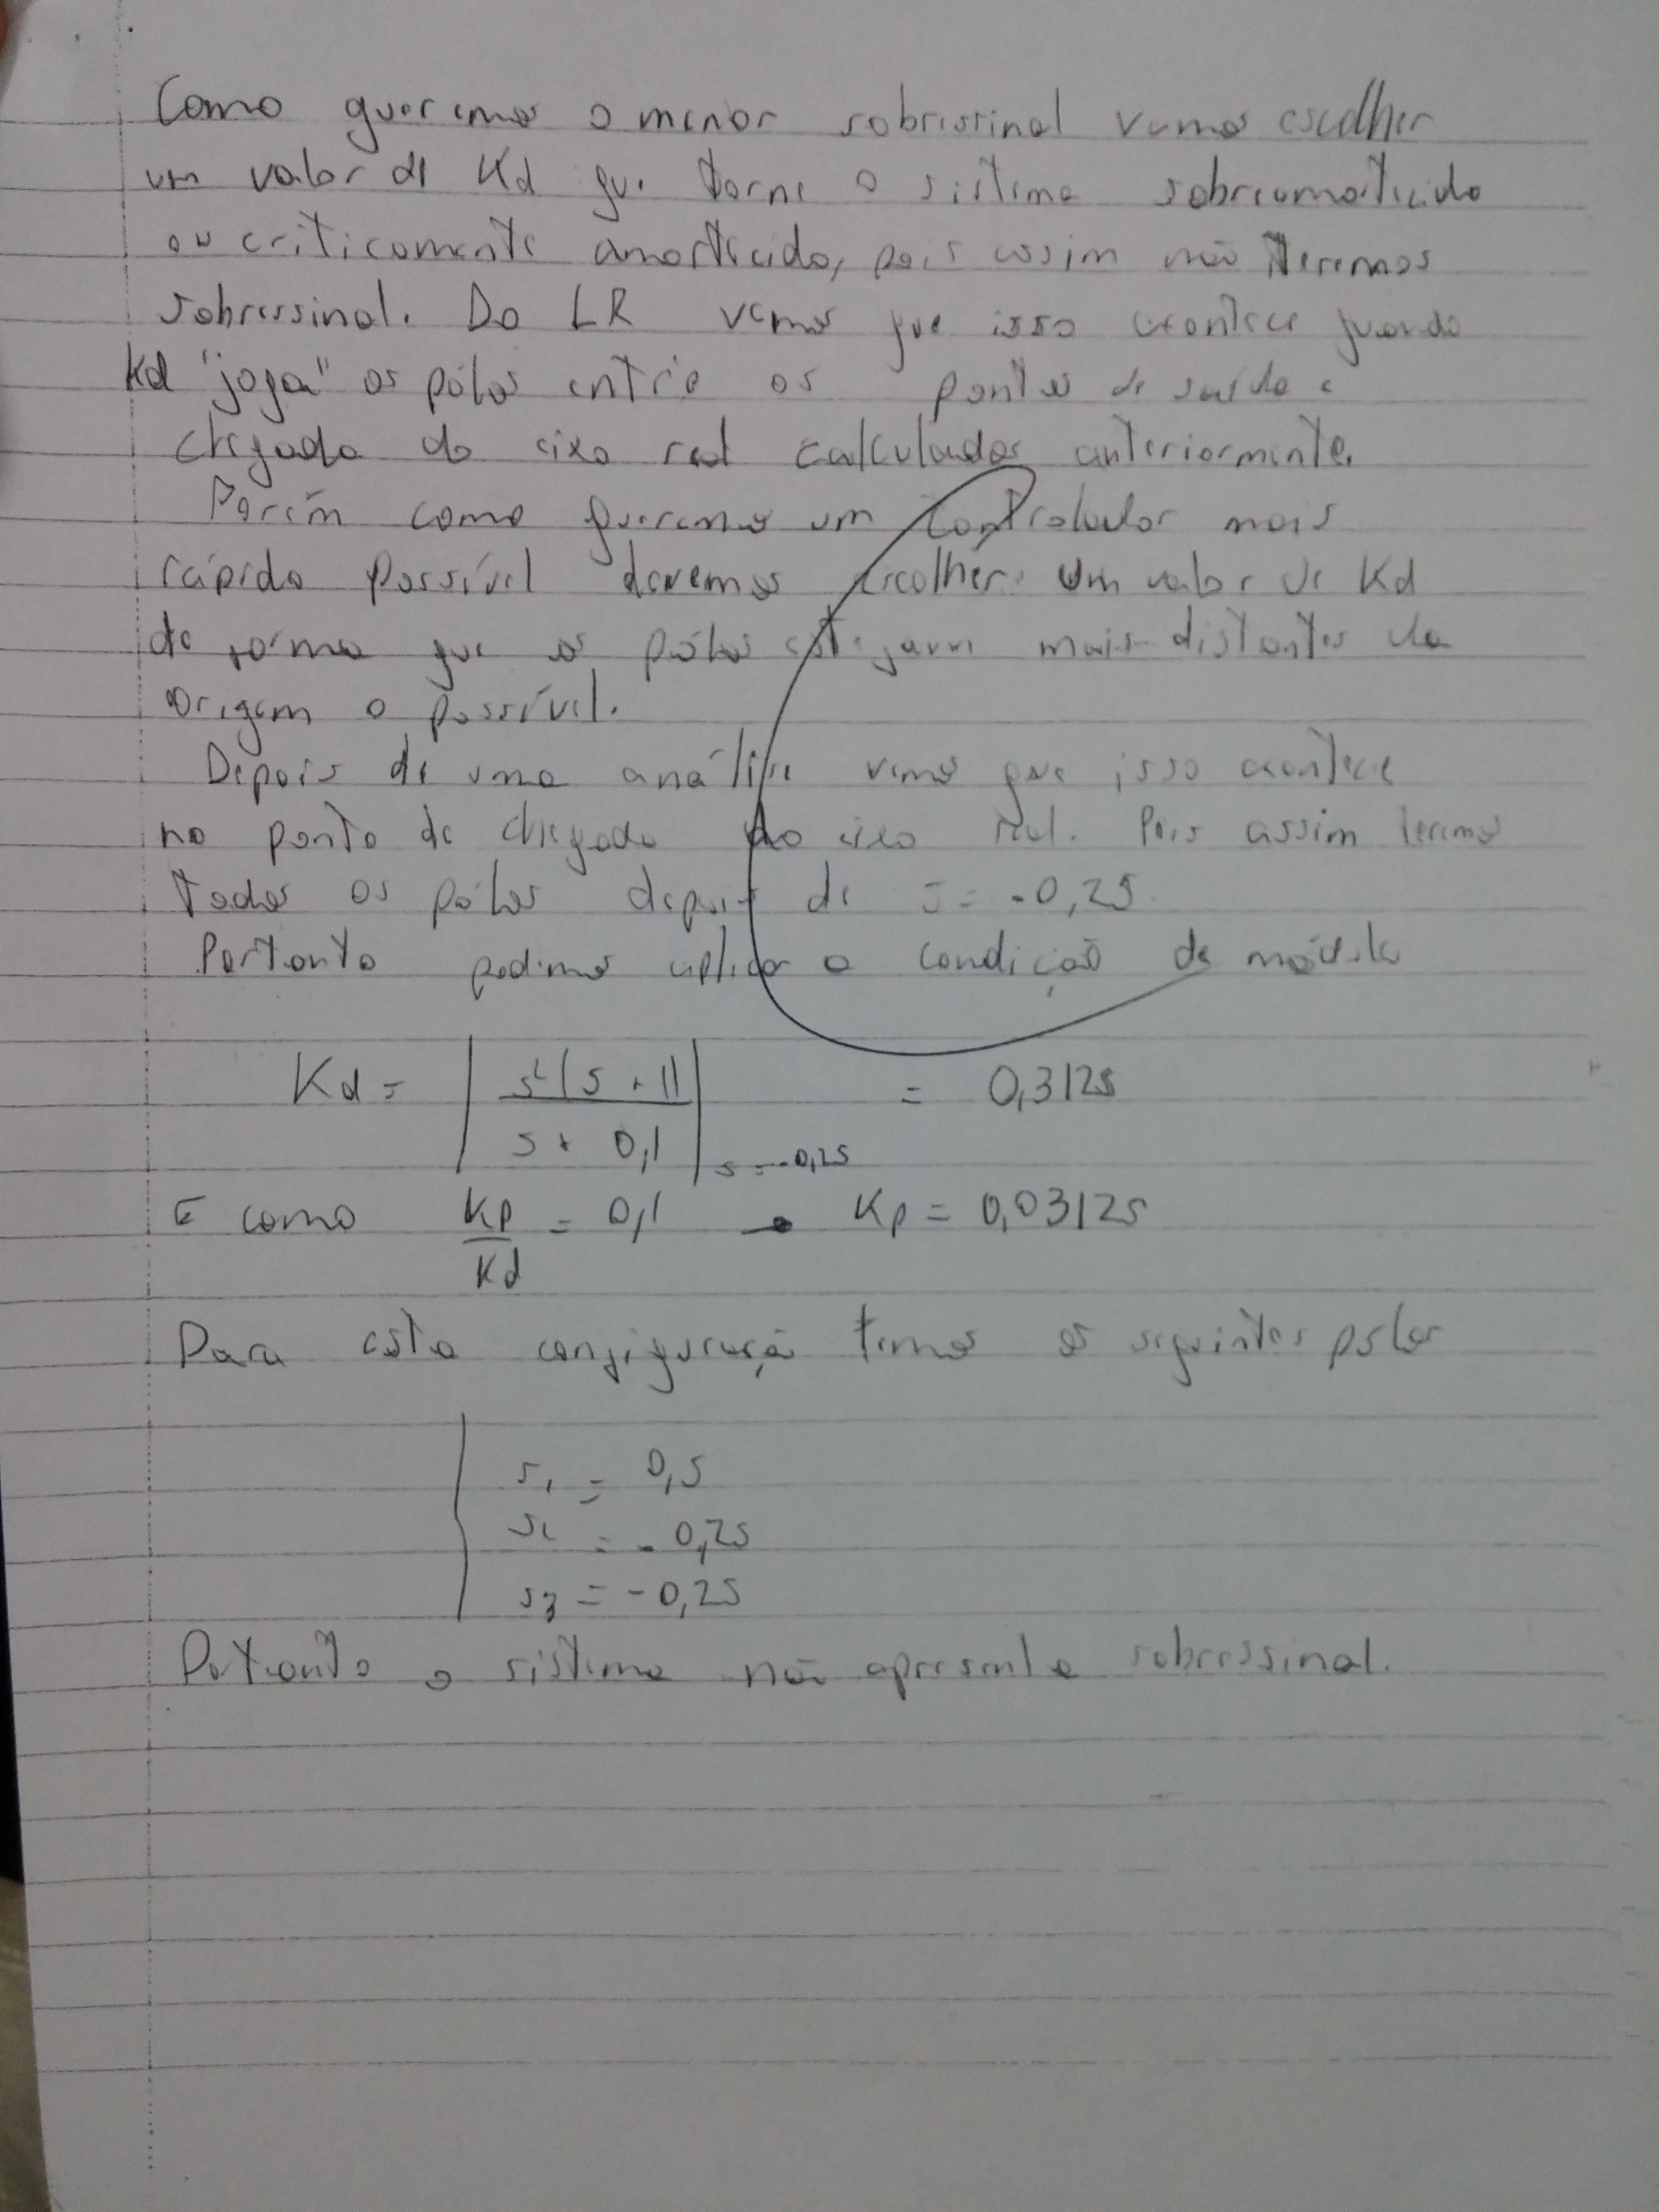 Como queremos o menor sobressinal vamos escolher
um valor de Kd que torne o sistema sobreamortecido
ou criticamente amortecido, pois assim não teremos
sobressinal. Do LR vemos que isso acontece quando
Kd "joga" os pólos entre os pontos de saída e
chegada do eixo real calculados anteriormente.
Porém como queremos um controlador mais
rápido possível devemos escolher um valor de Kd
de forma que os pólos estejam mais distantes da
origem o possível.
Depois de uma análise vemos que isso acontece
no ponto de chegada do eixo real. Pois assim teremos
todos os pólos depois de s = -0,25
Portanto podemos aplicar a condição de módulo
Kd = | s²(s + 1) / s + 0,1 | s = -0,25 = 0,3125
E como Kp / Kd = 0,1 → Kp = 0,03125
Para esta configuração temos os seguintes polos
s1 = 0,5
s2 = -0,25
s3 = -0,25
Portanto o sistema não apresenta sobressinal.